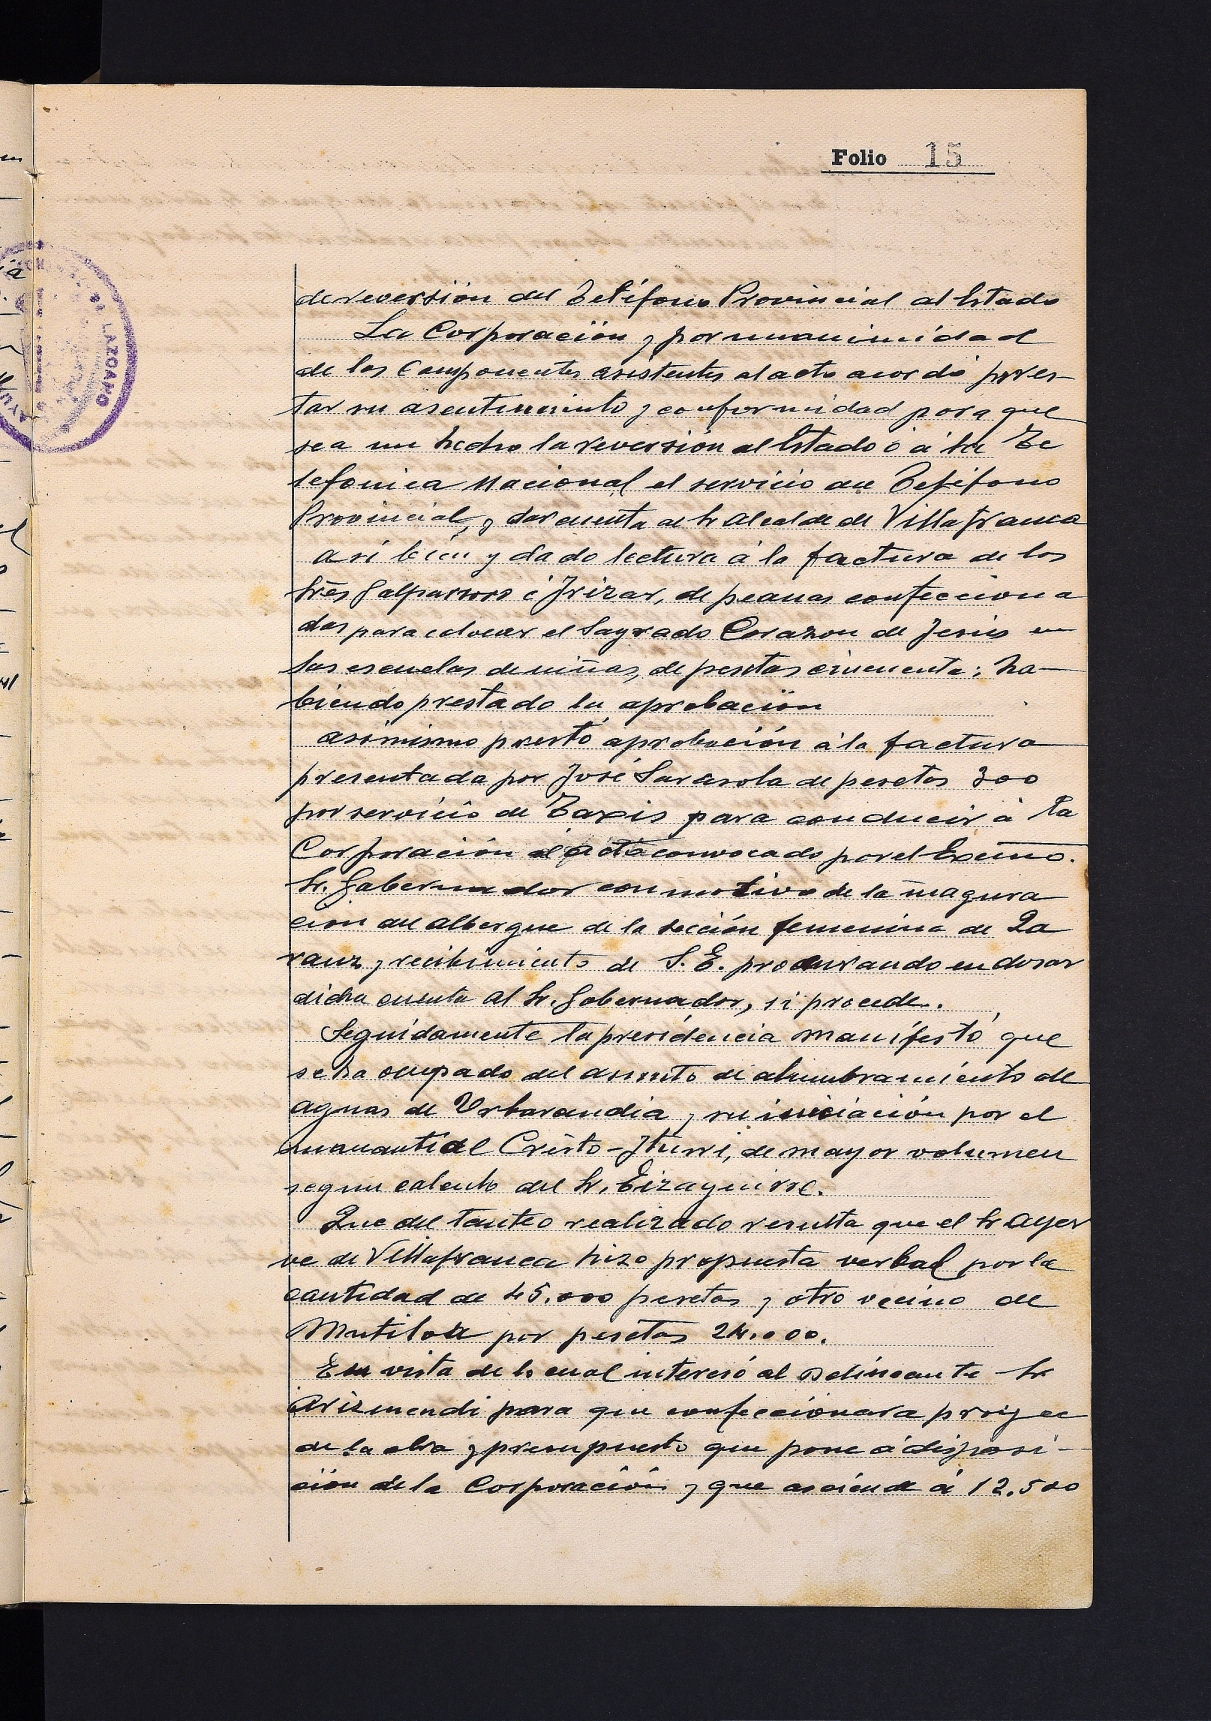 Folio 15
de reversión del Teléfono Provincial al Estado
La Corporación y por unanimidad
de los Componentes asistentes al acto acordó pres-
tar su asentimiento y conformidad para que
sea un hecho la reversión al Estado ó á la Te
lefonica Nacional el servicio del Teléfono
Provincial, y dar cuenta al Sr Alcalde de Villafranca
asi bien y dado lectura á la factura de los
Srēs Galparsoro é Irizar, de peanas confecciona
das para colocar el Sagrado Corazon de Jesús en
las escuelas de niñas, de pesetas cincuenta; ha-
biendo prestado su aprobación
asimismo prestó aprobación á la factura
presentada por José Sarasola de pesetas 300
por servicio de Taxis para conducir á la
Corporación al acto convocado por el Excmo.
Sr. Gobernador con motivo de la inagura
cion del albergue de la sección femenina de Za
rauz y recibimiento de S. E. procurando endosar
dicha cuenta al Sr. Gobernador, si procede.
Seguidamente la presidencia manifestó que
se ha ocupado del asunto de alumbramiento de
aguas de Urbarandia y su iniciación por el
manantial Cristo-Iturri, de mayor volumen
segun calculo del Sr. Eizaguirre.
Que del tanteo realizado resulta que el Sr Ayer
ve de Villafranca hizo propuesta verbal por la
cantidad de 45.000 pesetas y otro vecino de
Mutiloa por pesetas 24.000.
En vista de lo cual interesó al Delineante Sr
Arizmendi para que confeccionara proyec
de la obra y presupuesto que pone á disposi-
ción de la Corporación y que asciende á 12.500
AYU LAZCANO